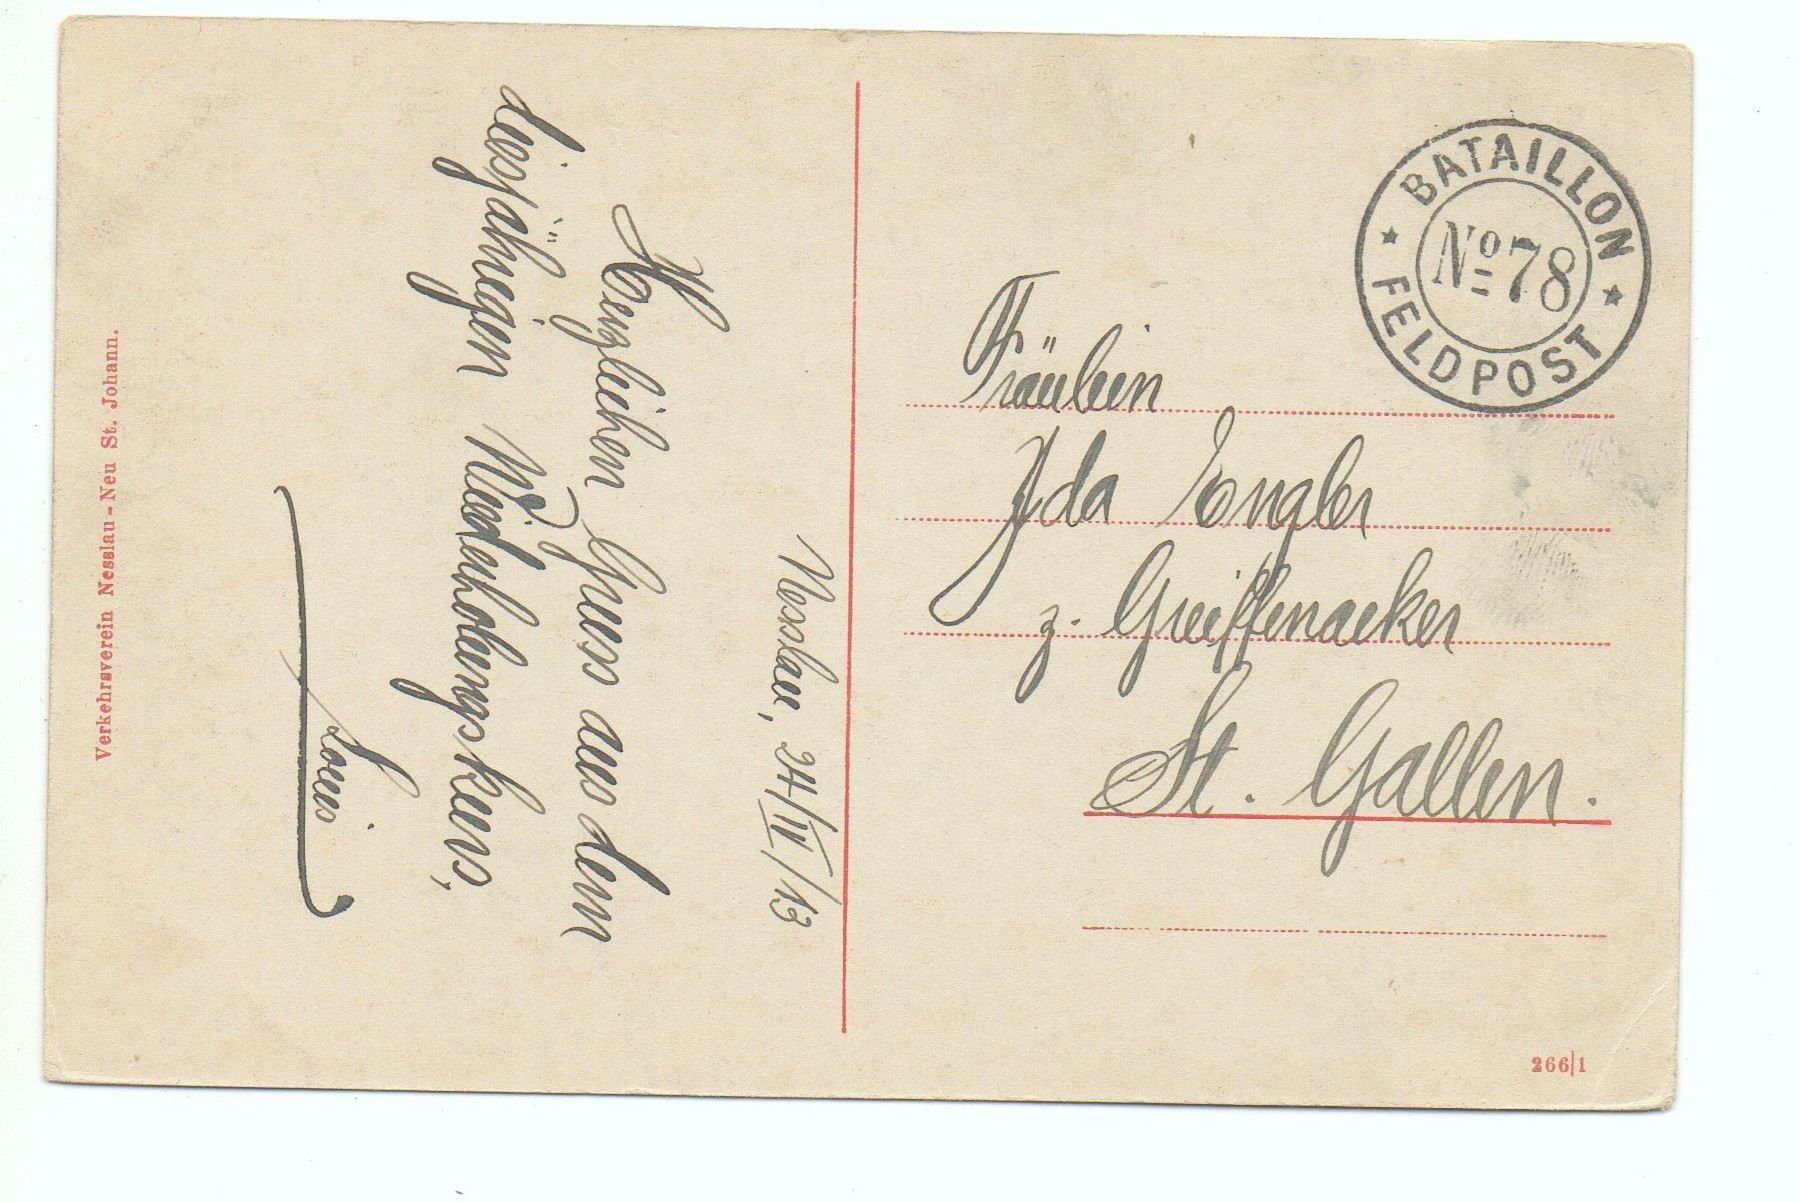 Nesslau, 24/IV/13
Herzlichen Gruss aus dem
diesjährigen Wiederholungskurs,
Louis
Verkehrsverein Nesslau-Neu St. Johann.
BATAILLON
No 78
FELDPOST
Fräulein
Ida Engler
z. Greiffenacker
St. Gallen.
266|1